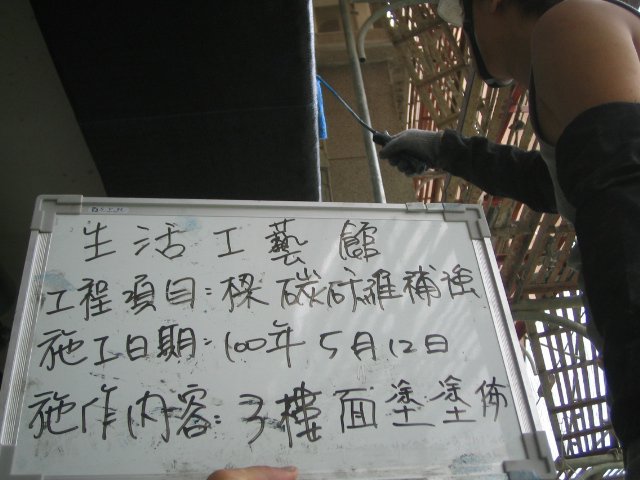 生活工藝館
工程項目:樑碳纖維補強
施工日期:100年5月12日
施作內容:3樓面塗塗佈